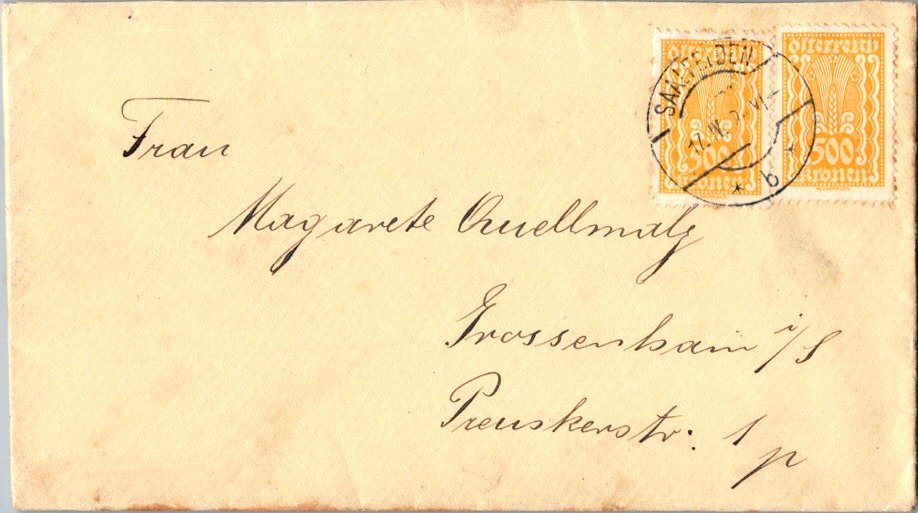 österreich
500
kronen
österreich
500
kronen
SAALFELDEN
17. IV.
* b *
Frau
Magarete Quellmalz
Grossenhain i/S
Preuskerstr. 1 p